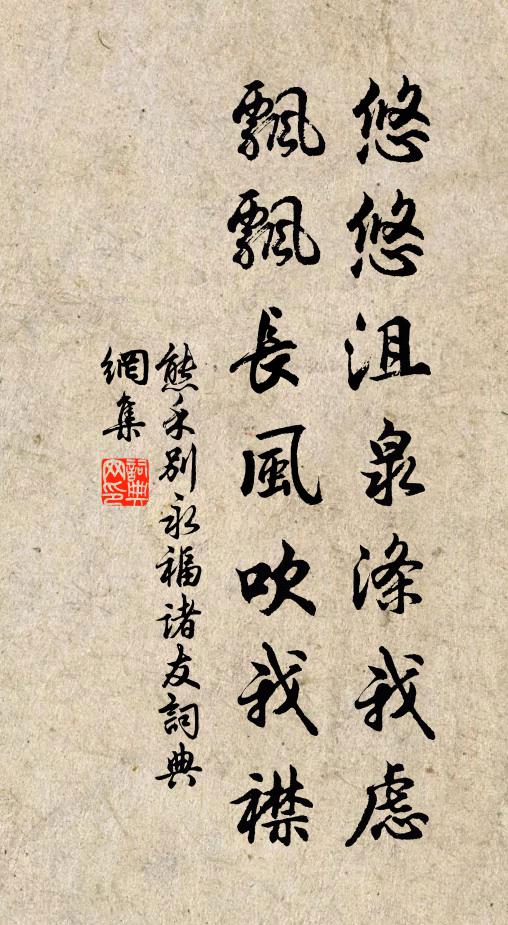 悠悠沮泉滌我慮
飄飄長風吹我襟
熊禾別永福諸友詞典
網集
詞典網印